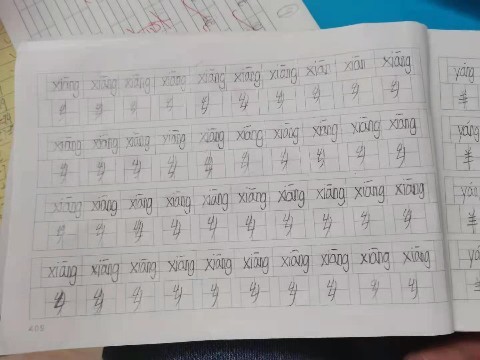 xiāng xiāng xiāng xiāng xiāng xiāng xiāng xiān xiān xiāng
乡 乡 乡 乡 乡 乡 乡 乡 乡 乡
xiāng xiāng xiāng xiāng xiāng xiāng xiāng xiāng xiāng xiāng
乡 乡 乡 乡 乡 乡 乡 乡 乡 乡
xiāng xiāng xiāng xiāng xiāng xiāng xiāng xiāng xiāng xiāng
乡 乡 乡 乡 乡 乡 乡 乡 乡 乡
xiāng xiāng xiāng xiāng xiāng xiāng xiāng xiāng xiāng xiāng
乡 乡 乡 乡 乡 乡 乡 乡 乡 乡
yáng
羊
yáng
羊
yáng
羊